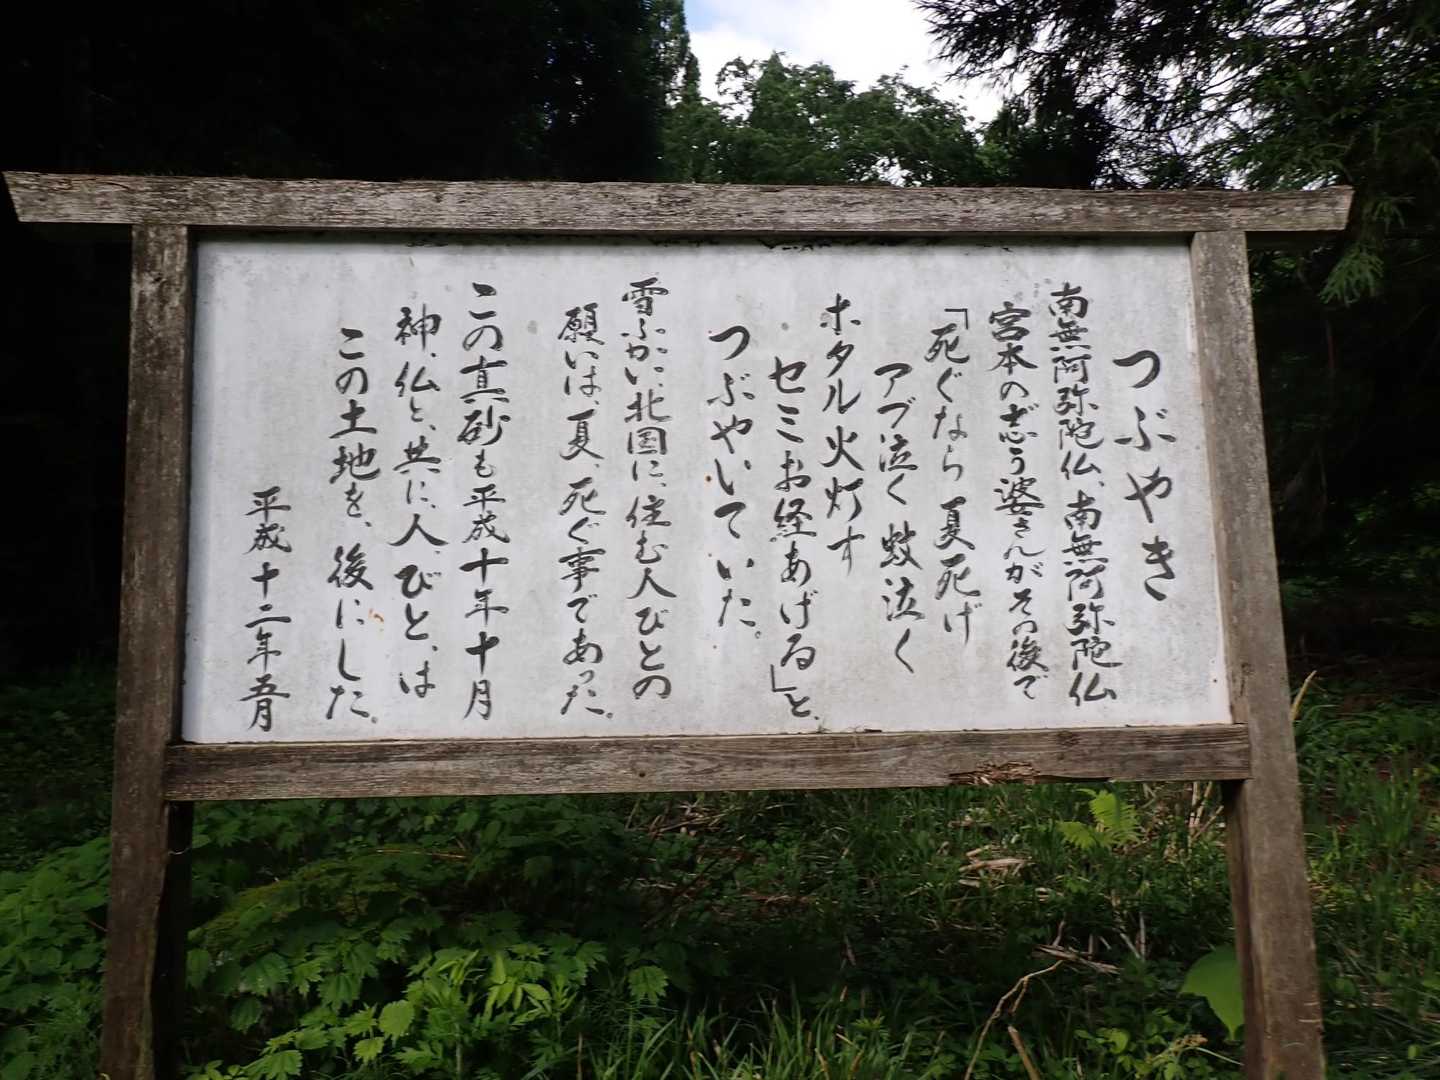 つぶやき
南無阿弥陀仏、南無阿弥陀仏
宮本の志う婆さんがその後で
「死ぐなら夏死げ
アブ泣く蚊泣く
ホタル火灯す
セミお経あげる」と、
つぶやいていた。
雪ふかい、北国に、住む人びとの
願いは、夏、死ぐ事であった。
この真砂も平成十年十月
神、仏と、共に、人、びと、は
この土地を、後にした。
平成十二年五月